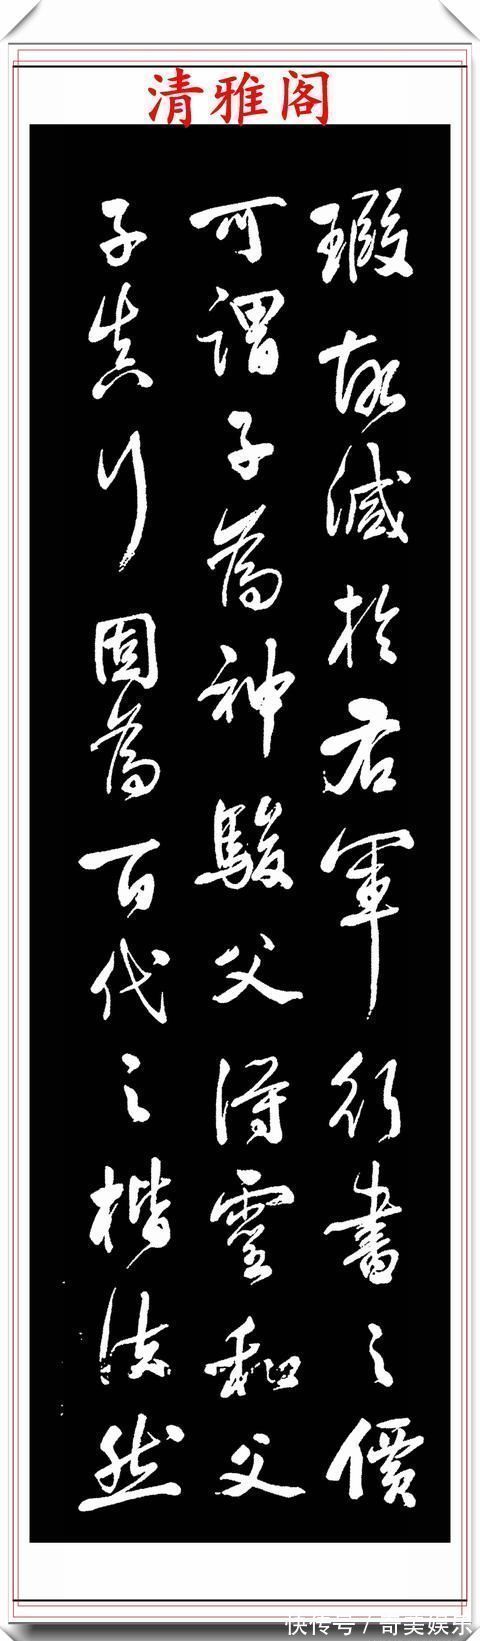 清雅阁
瑕故減於右軍行書之價
可謂子為神駿父得靈和父
子真行固為百代之楷法然
快传号 / 奇美娱乐